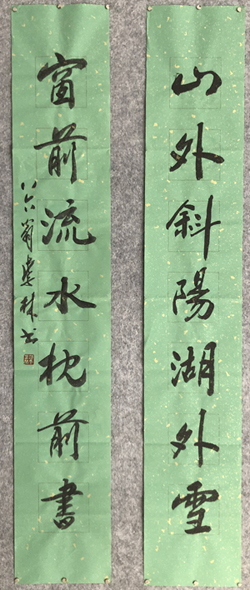 山外斜陽湖外雪
窗前流水枕前書
八六翁